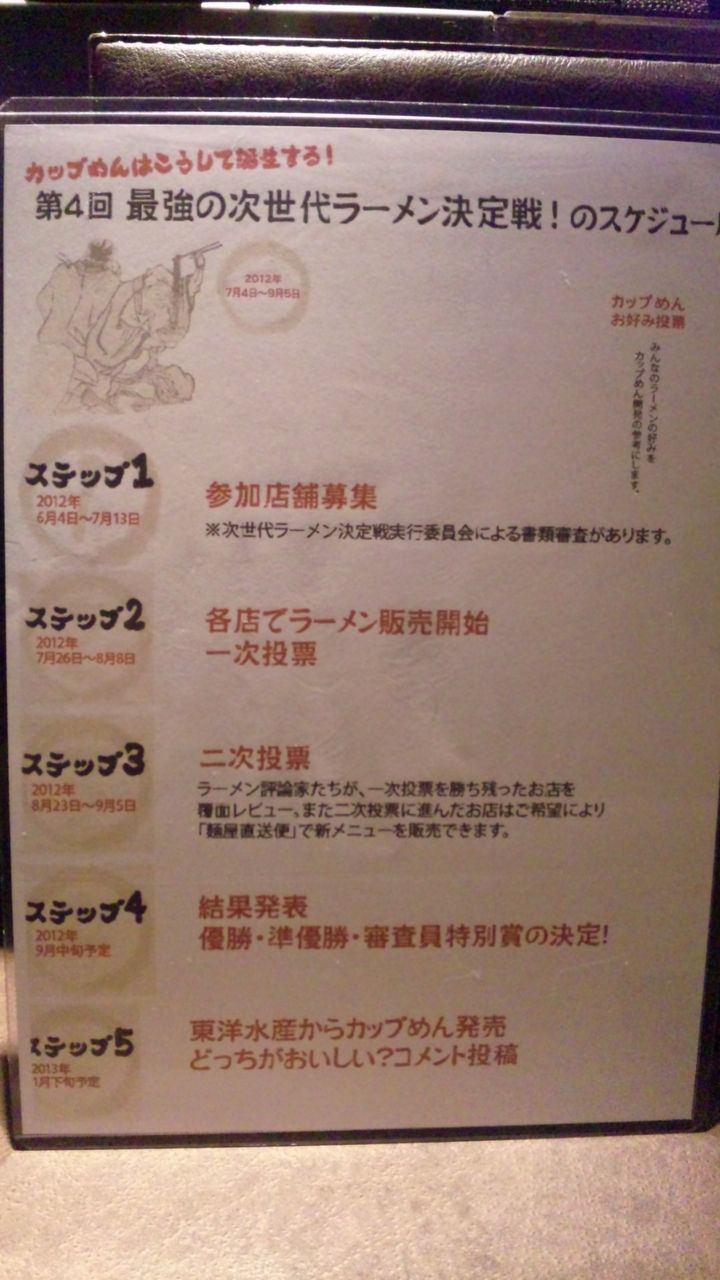 カップめんはこうして誕生する!
第4回 最強の次世代ラーメン決定戦!のスケジュール
2012年
7月4日〜9月5日
カップめん
お好み投票
みんなのラーメンの好みを
カップめん開発の参考にします。
ステップ1
2012年
6月4日〜7月13日
参加店舗募集
※次世代ラーメン決定戦実行委員会による書類審査があります。
ステップ2
2012年
7月26日〜8月8日
各店でラーメン販売開始
一次投票
ステップ3
2012年
8月23日〜9月5日
二次投票
ラーメン評論家たちが、一次投票を勝ち残ったお店を
覆面レビュー。また二次投票に進んだお店はご希望により
「麺屋直送便」で新メニューを販売できます。
ステップ4
2012年
9月中旬予定
結果発表
優勝・準優勝・審査員特別賞の決定!
ステップ5
2013年
1月下旬予定
東洋水産からカップめん発売
どっちがおいしい?コメント投稿